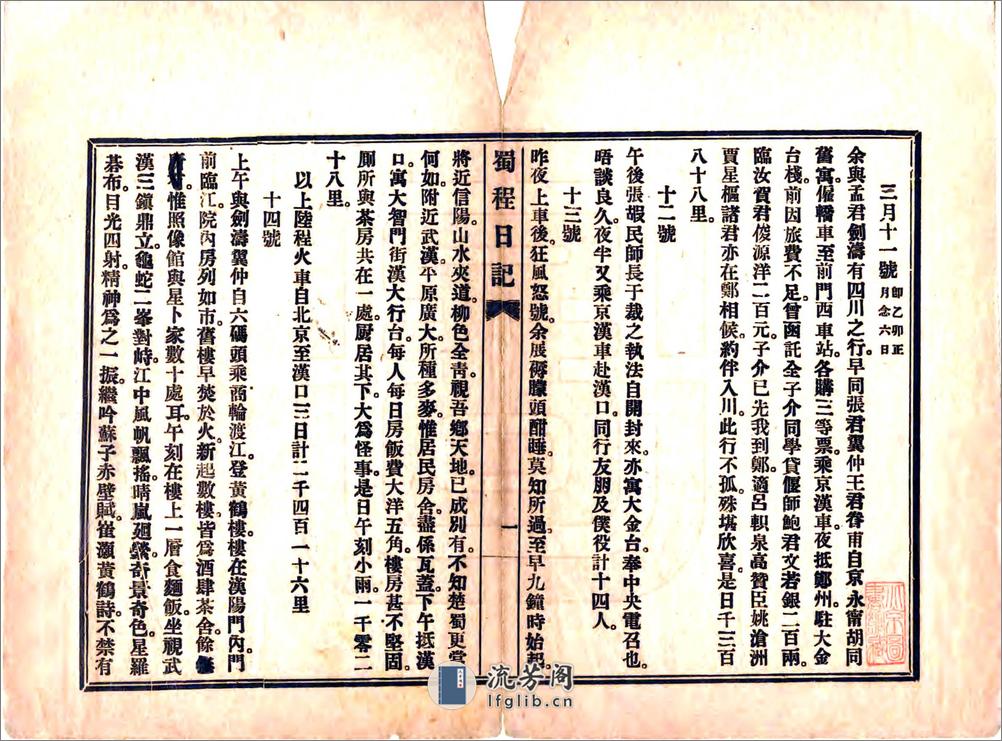 三月十一號 即乙卯正月念六日
余與孟君劍濤有四川之行早同張君翼仲王君眷甫自京永甯胡同
舊寓僱轎車至前門西車站各購三等票乘京漢車夜抵鄭州駐大金
台棧前因旅費不足曾函託全子介同學貸偃師鮑君文若銀二百兩
臨汝賀君俊源洋二百元子介已先我到鄭適呂軹泉高贊臣姚滄洲
賈星樞諸君亦在鄭相候約伴入川此行不孤殊堪欣喜是日千三百
八十八里
十二號
午後張嘏民師長于裁之執法自開封來亦寓大金台奉中央電召也
晤談良久夜半又乘京漢車赴漢口同行友朋及僕役計十四人
十三號
昨夜上車後狂風怒號余展褥朦頭酣睡莫知所過至早九鐘時始起
蜀程日記
一
將近信陽山水夾道柳色全青視吾鄉天地已成別有不知楚蜀更當
何如附近武漢平原廣大所種多麥惟居民房舍盡係瓦蓋下午抵漢
口寓大智門街漢大行台每人每日房飯費大洋五角樓房甚不堅固
厠所與茶房共在一處厨居其下大為怪事是日午刻小雨一千零二
十八里
以上陸程火車自北京至漢口三日計二千四百一十六里
十四號
上午與劍濤翼仲自六碼頭乘商輪渡江登黃鶴樓樓在漢陽門內門
前臨江院內房列如市舊樓早焚於火新起數樓皆為酒肆茶舍餘
惟照像館與星卜家數十處耳午刻在樓上一層食麵飯坐視武
漢三鎮鼎立龜蛇二峯對峙江中風帆飄搖晴嵐廻縈奇景奇色星羅
碁布目光四射精神為之一振繼吟蘇子赤壁賦崔灝黃鶴詩不禁有
流芳閣
lfglib.cn